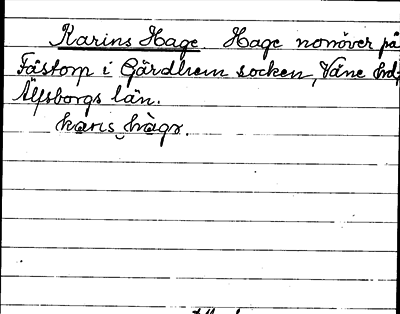 Karins Hage. Hage norröver på
Fästorp i Gärdhem socken, Väne hd,
Älfsborgs län.